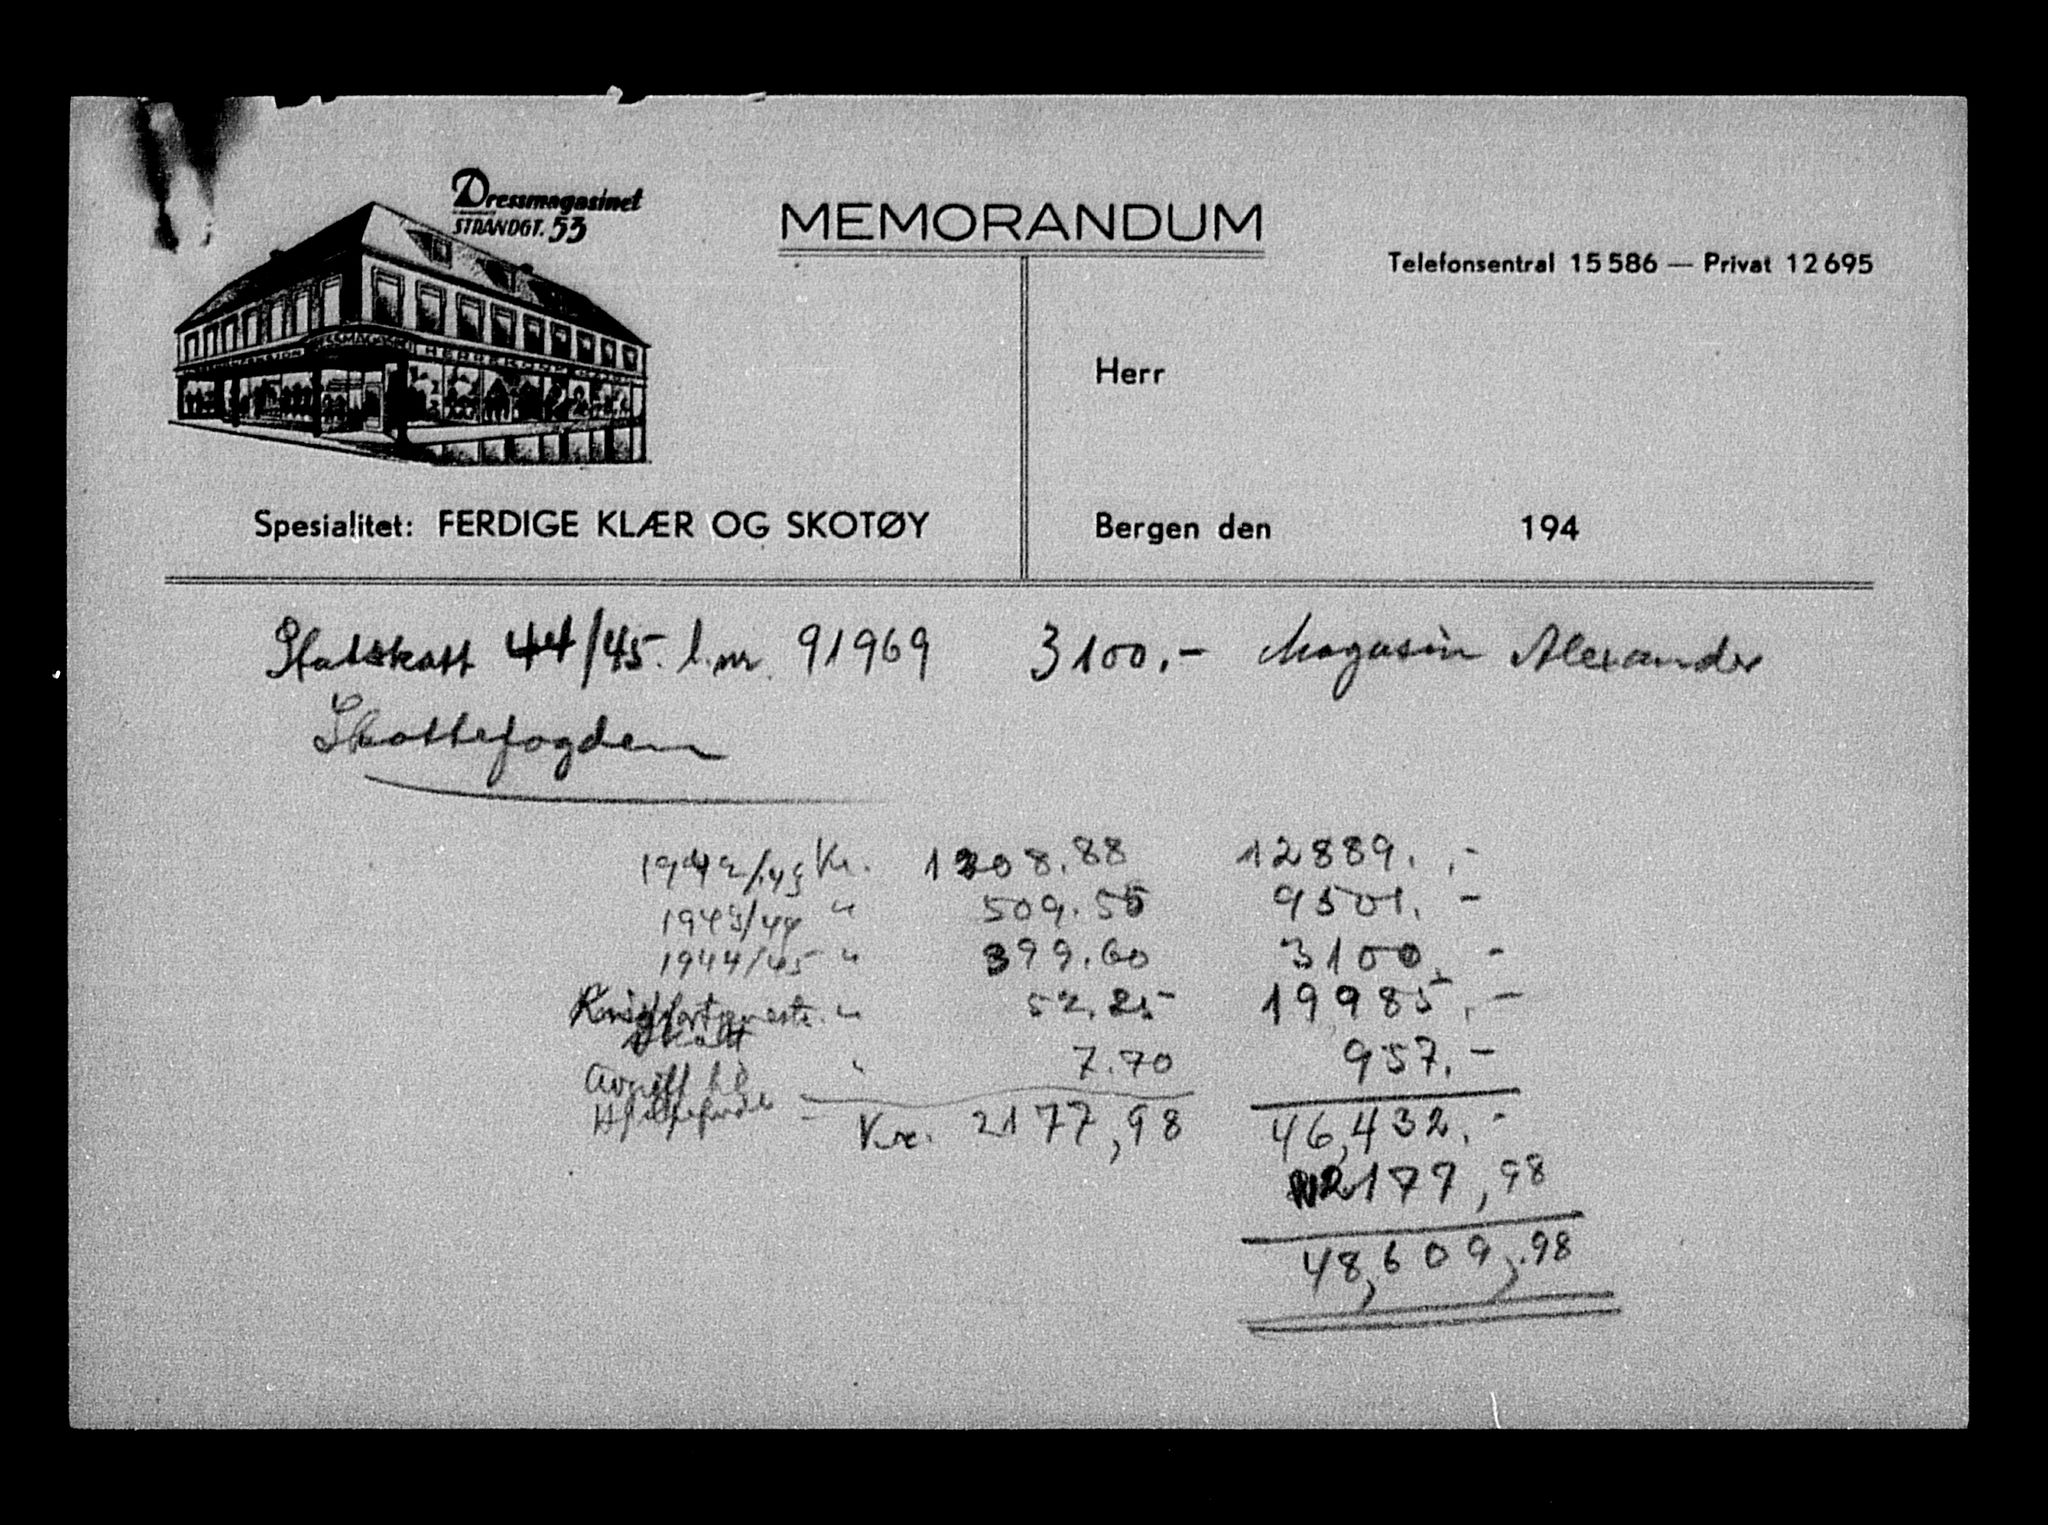 Dressmagasinet
STRANDGT. 53
MEMORANDUM
Telefonsentral 15 586 — Privat 12 695
Herr
Spesialitet: FERDIGE KLÆR OG SKOTØY
Bergen den 194
Statskatt 44/45. l.nr. 91969 3100.- Magasin Alexander
Skattefogden
1942/43 Kr. 1208.88 12889.-
1943/44 " 509.55 9501.-
1944/45 " 399.60 3100.-
" 52.25 19985.-
skatt
7.70 957.-
Avgift til
Hjelpefondet
Kr. 2177,98 46,432.-
2177,98
48,609,.98